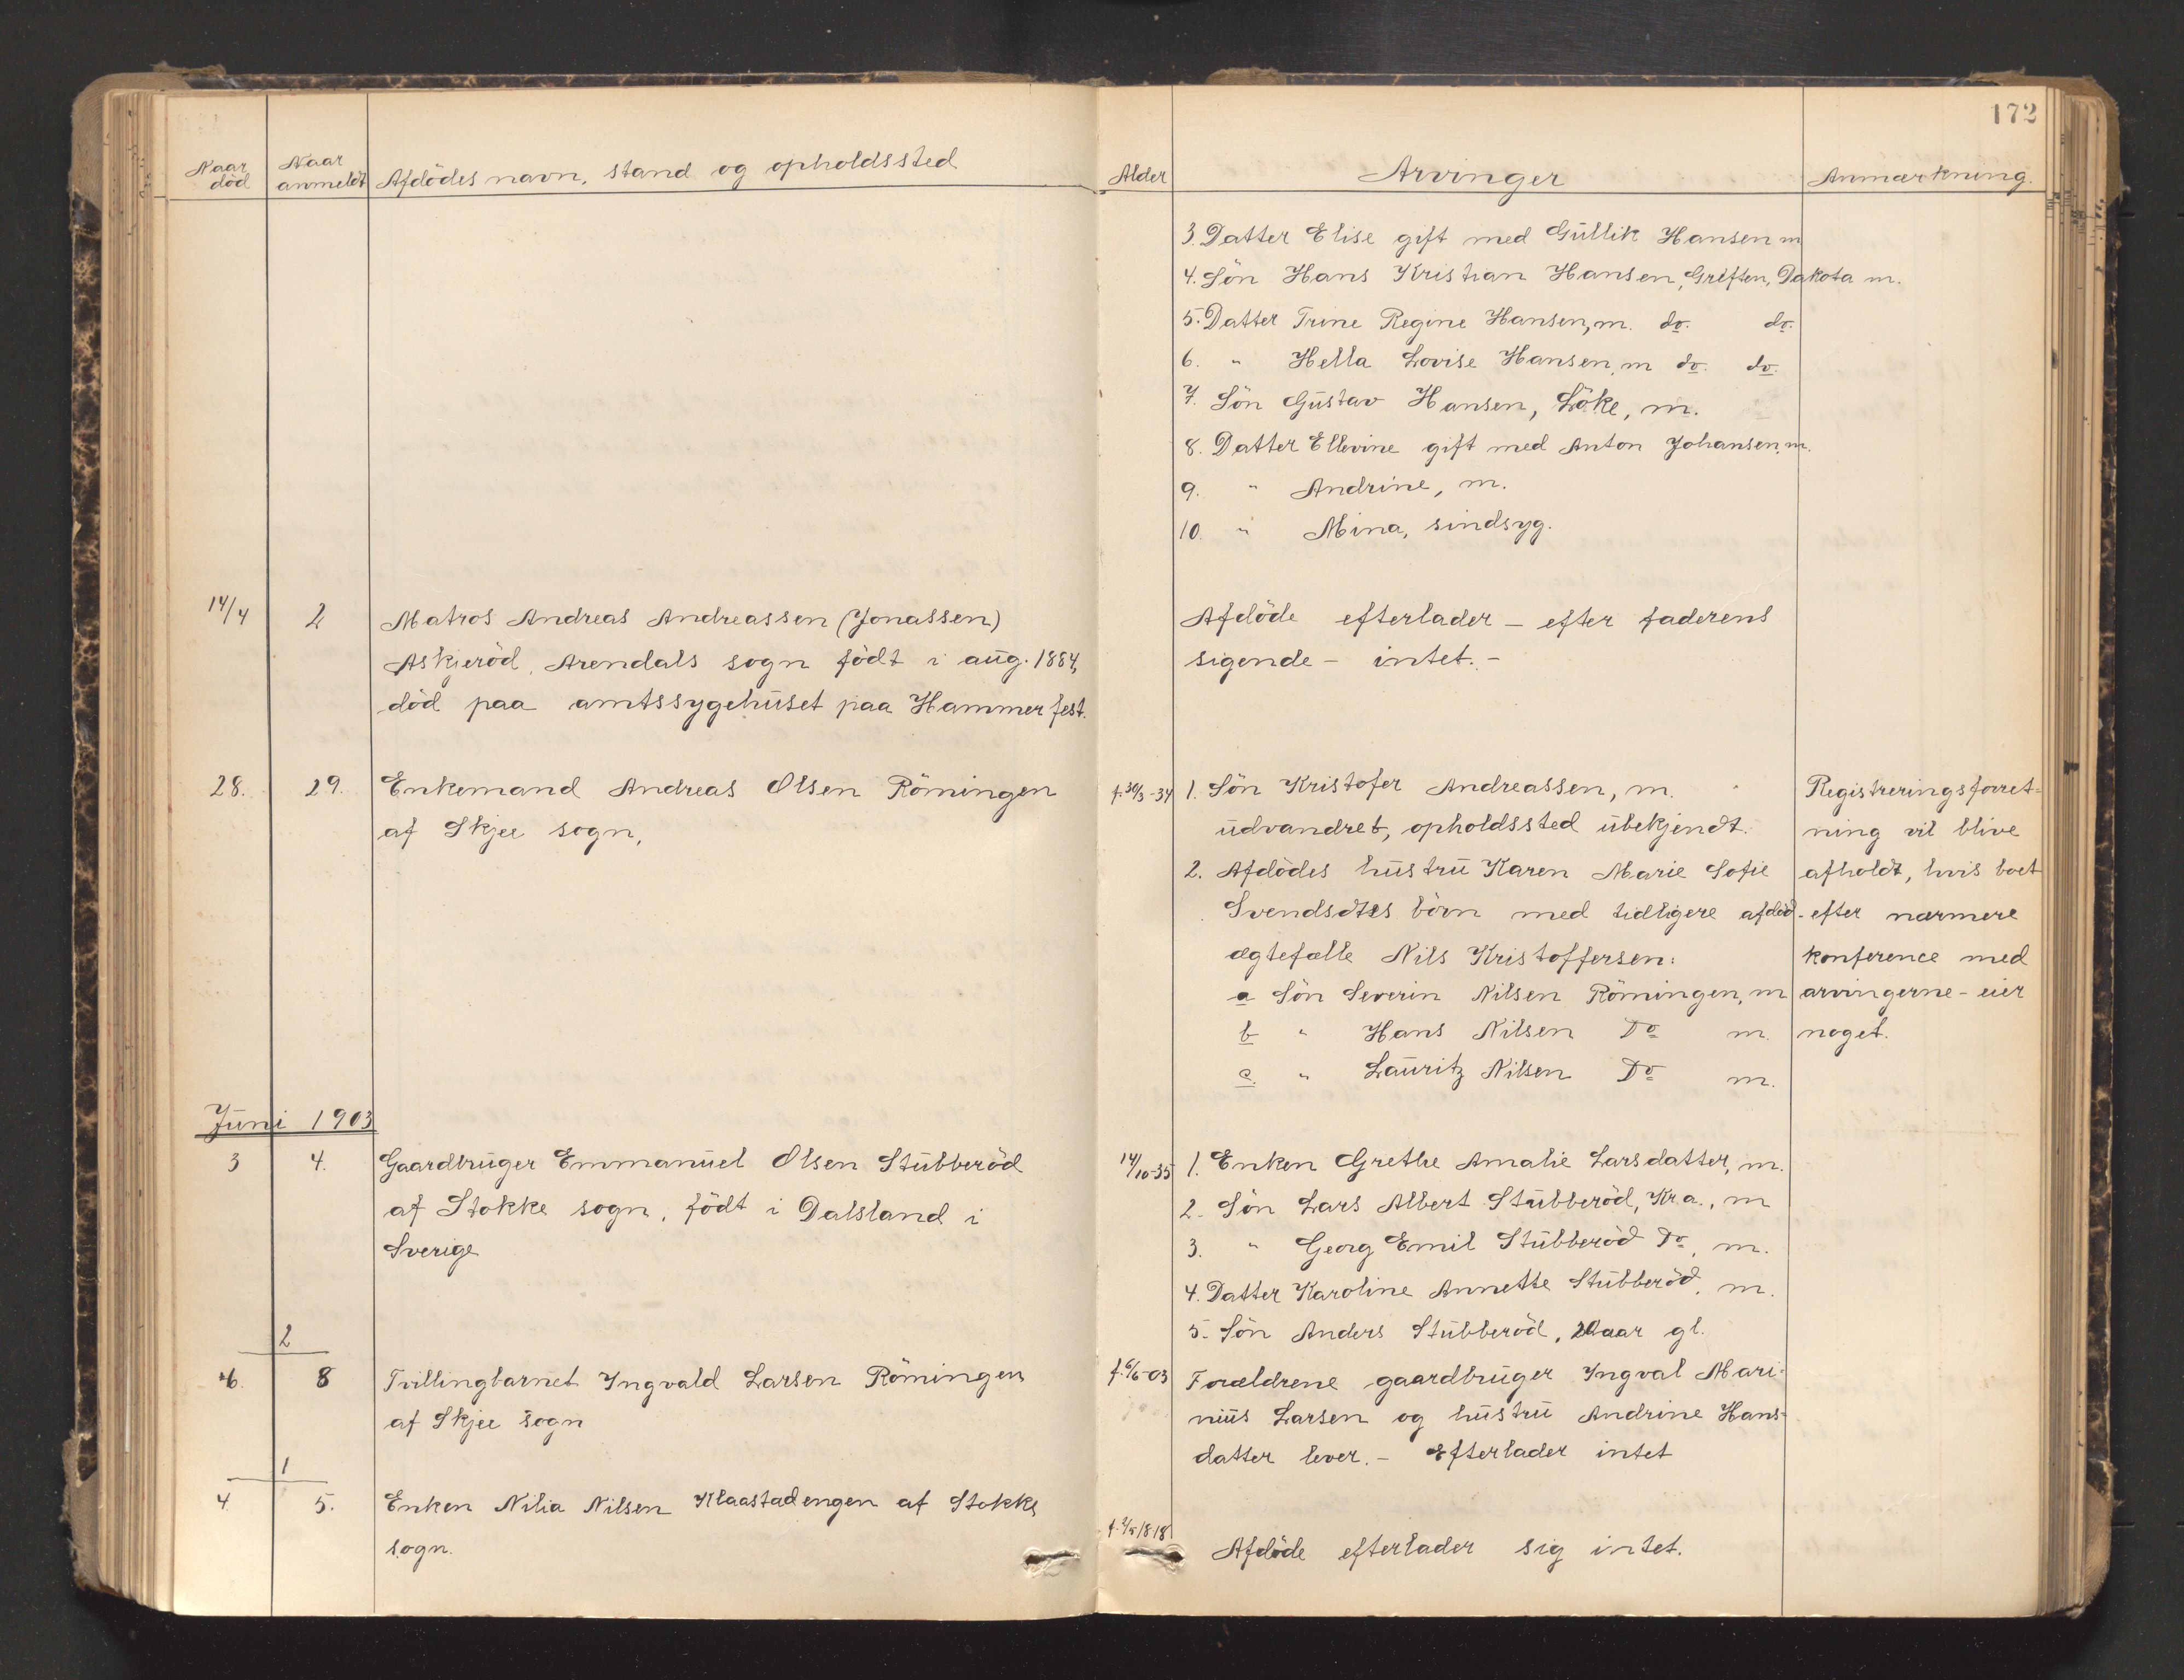 172
Naar død
Naar anmeldt
Afdödes navn, stand og opholdssted
Alder
Arvinger
Anmærkning.
3. Datter Elise gift med Gullik Hansen m
4. Sön Hans Kristian Hansen, Greften, Dakota m.
5. Datter Trine Regine Hansen, m. do. do.
6. " Hella Lovise Hansen, m do. do.
7. Sön Gustav Hansen, Löke, m.
8. Datter Ellevine gift med Anton Johansen, m.
9. " Andrine, m.
10. " Mina, sindsyg.
14/4 2 Matros Andreas Andreassen (Jonassen)
Askjeröd, Arendals sogn födt i aug. 1884,
död paa amtssygehuset paa Hammerfest.
Afdöde efterlader – efter faderens
sigende – intet. –
28. 29. Enkemand Andreas Olsen Römingen
af Skjee sogn,
f. 30/3-34 1. Sön Kristofer Andreassen, m.
udvandret, opholdssted ubekjendt.
2. Afdödes hustru Karen Marie Sofie
Svendsdtrs börn med tidligere afdöd
ægtefælle Nils Kristoffersen:
a Sön Severin Nilsen Römingen, m
b " Hans Nilsen Do m.
c. " Lauritz Nilsen Do m.
Registreringsforret-
ning vil blive
afholdt, hvis boet
- efter nærmere
konference med
arvingerne – eier
noget.
Juni 1903
3 4. Gaardbruger Emmanuel Olsen Stubberöd
af Stokke sogn, födt i Dalsland i
Sverige
14/10-35 1. Enken Grethe Amalie Larsdatter, m.
2. Sön Lars Albert Stubberöd, Kr.a., m
3. " Georg Emil Stubberöd Do, m.
4. Datter Karoline Annette Stubberöd, m.
5. Sön Anders Stubberöd, 20 aar gl.
2
6. 8 Tvillingbarnet Yngvald Larsen Römingen
af Skjee sogn
f. 6/6-03 Forældrene gaardbruger Yngval Mari-
nius Larsen og hustru Andrine Hans-
datter lever. – Efterlader intet
1
4. 5. Enken Nilia Nilsen Klaastadengen af Stokke
sogn.
f. 2/5 1818
Afdöde efterlader sig intet.